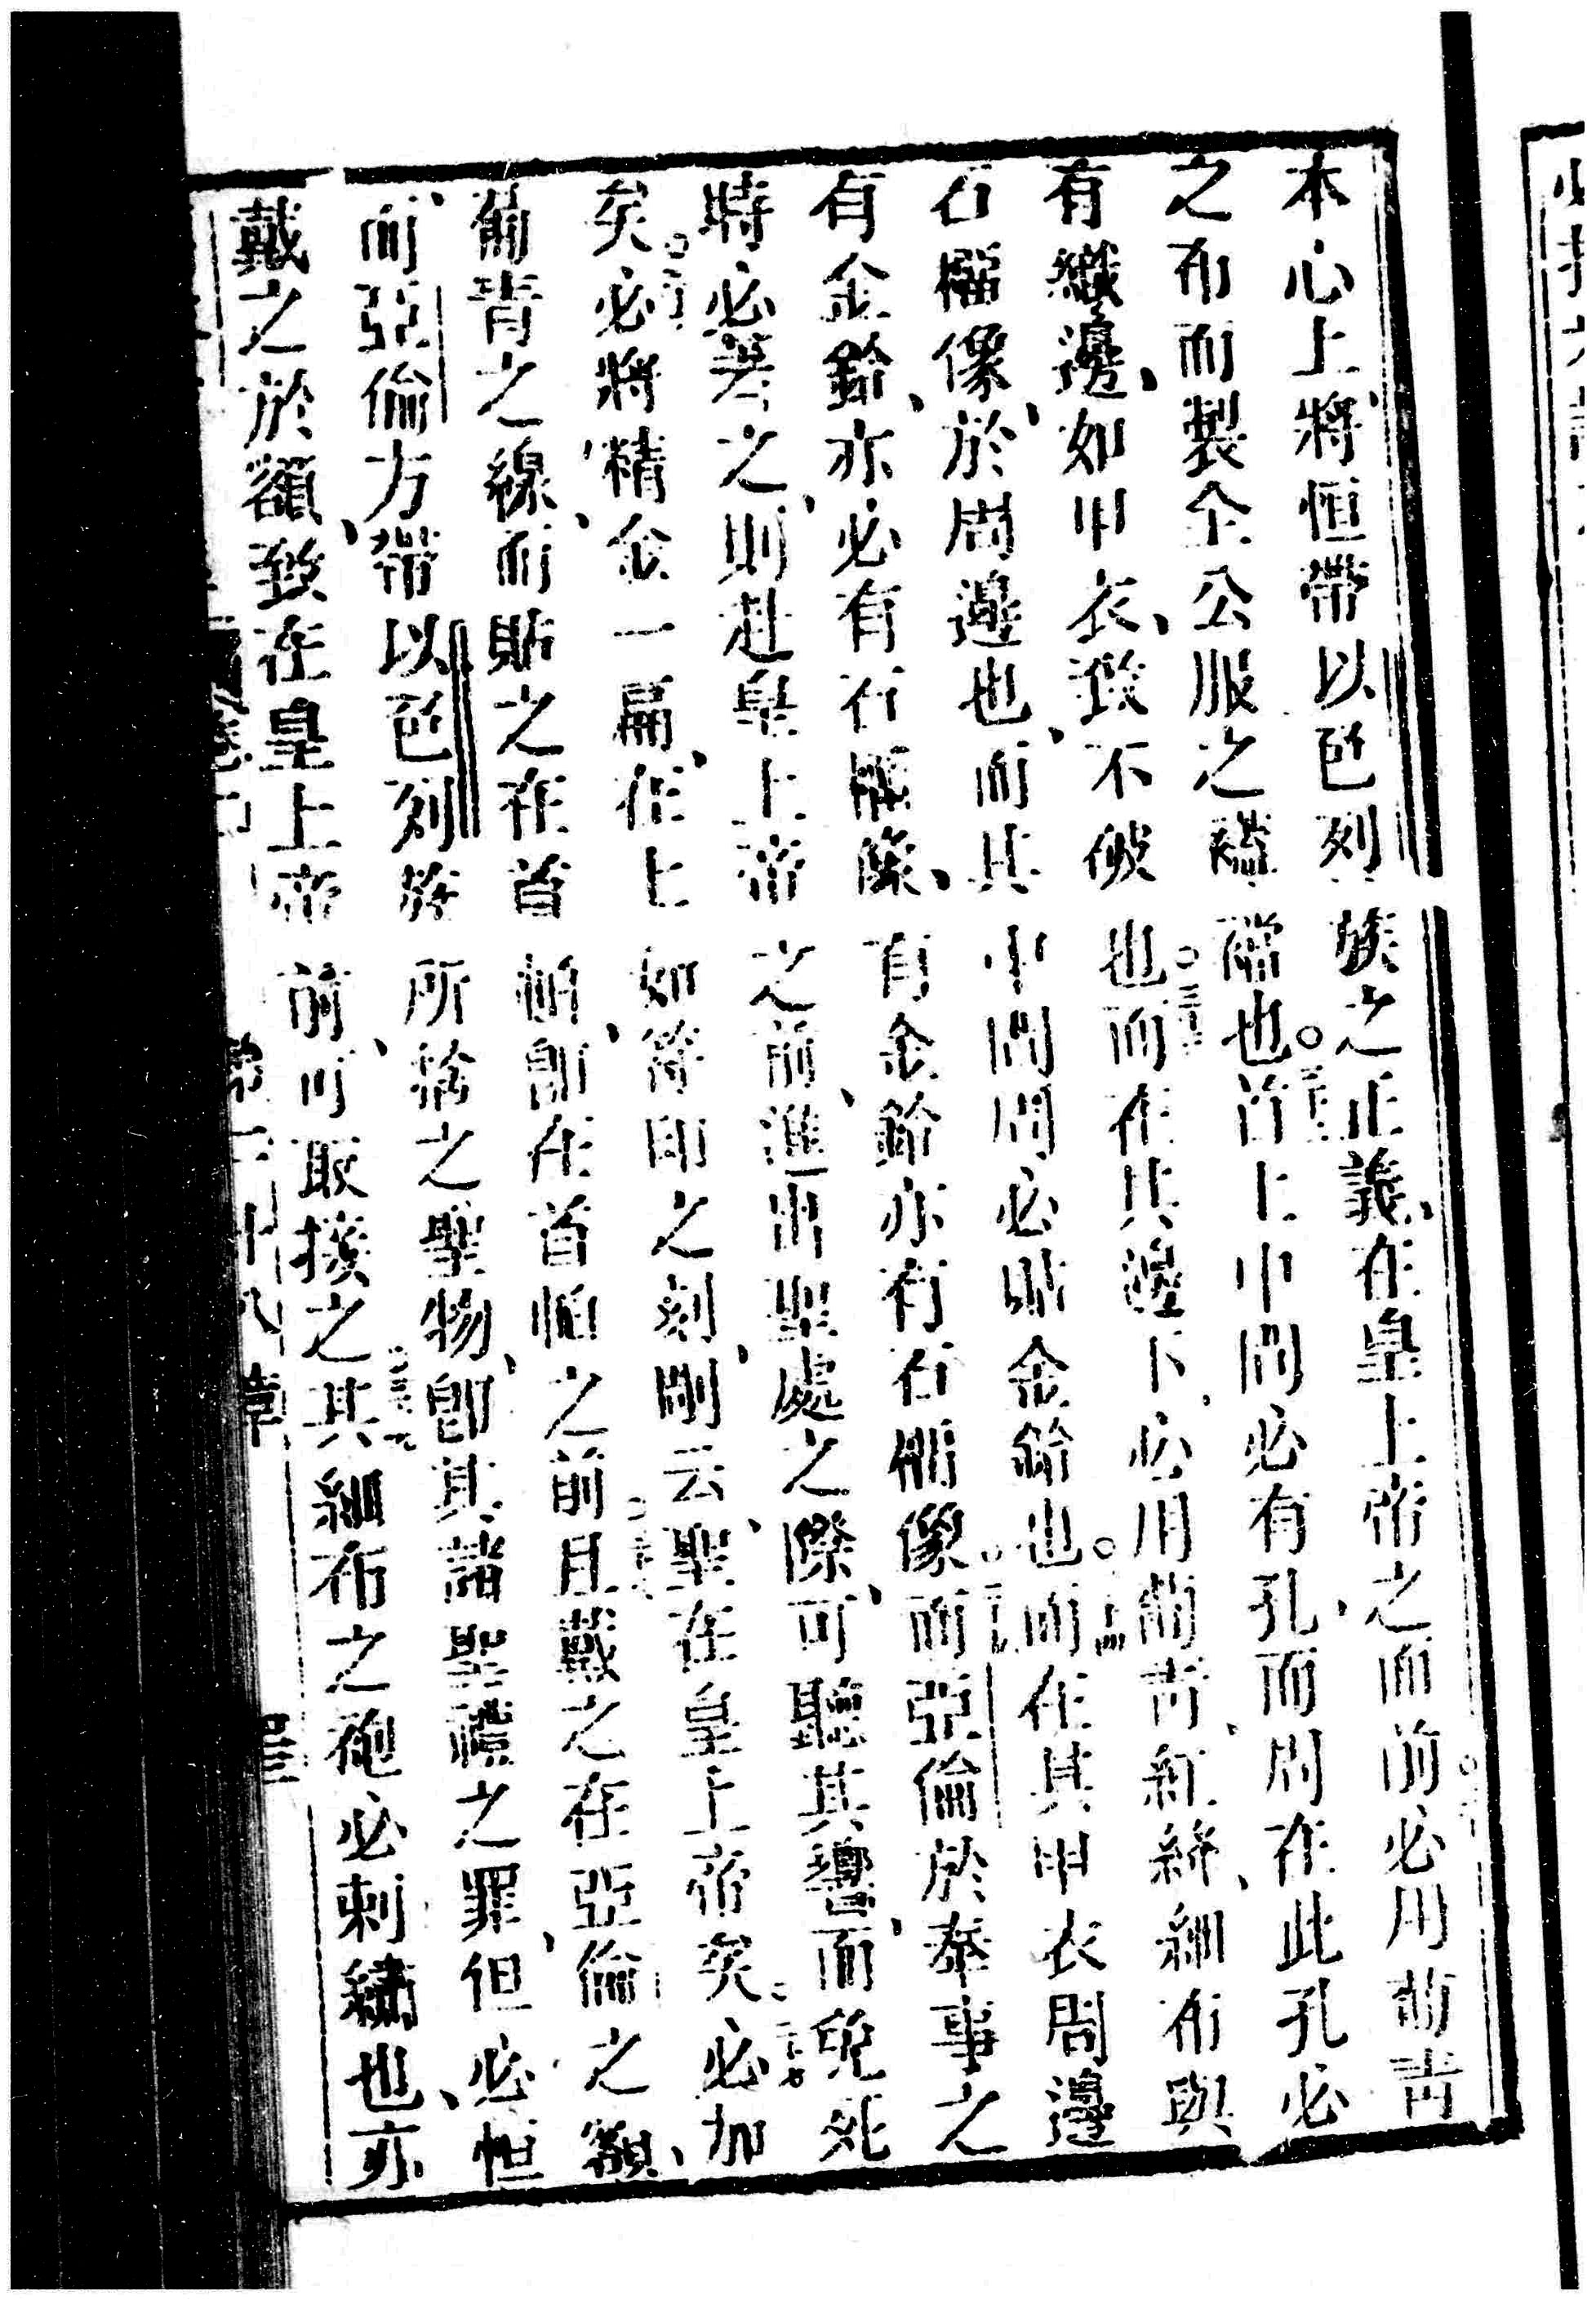 本心上、將恒帶以色列族之正義、在皇上帝之面前。必用葡青
之布而製全公服之𧞅襠也。首上中間必有孔、而周在此孔必
有織邊、如甲衣、致不破也。而在其邊下、必用葡青、紅絳、細布與
石榴像、於周邊也、而其中間周必貼金鈴也。而在其甲衣周邊
有金鈴、亦必有石榴像、有金鈴亦有石榴像。而亞倫於奉事之
時必着之、則赴皇上帝之前、進出聖處之際、可聽其響、而免死
矣。必將精金一扁、在上如符印之刻、刪云、聖在皇上帝矣。必加
葡青之線、而貼之在首帕、卽在首帕之前。且戴之在亞倫之額、
而亞倫方帶以色列族所捨之聖物、卽其諸聖禮之罪、但必恒
戴之於額、致在皇上帝前、可取接之。其細布之袍必刺繡也、亦
第二十八章